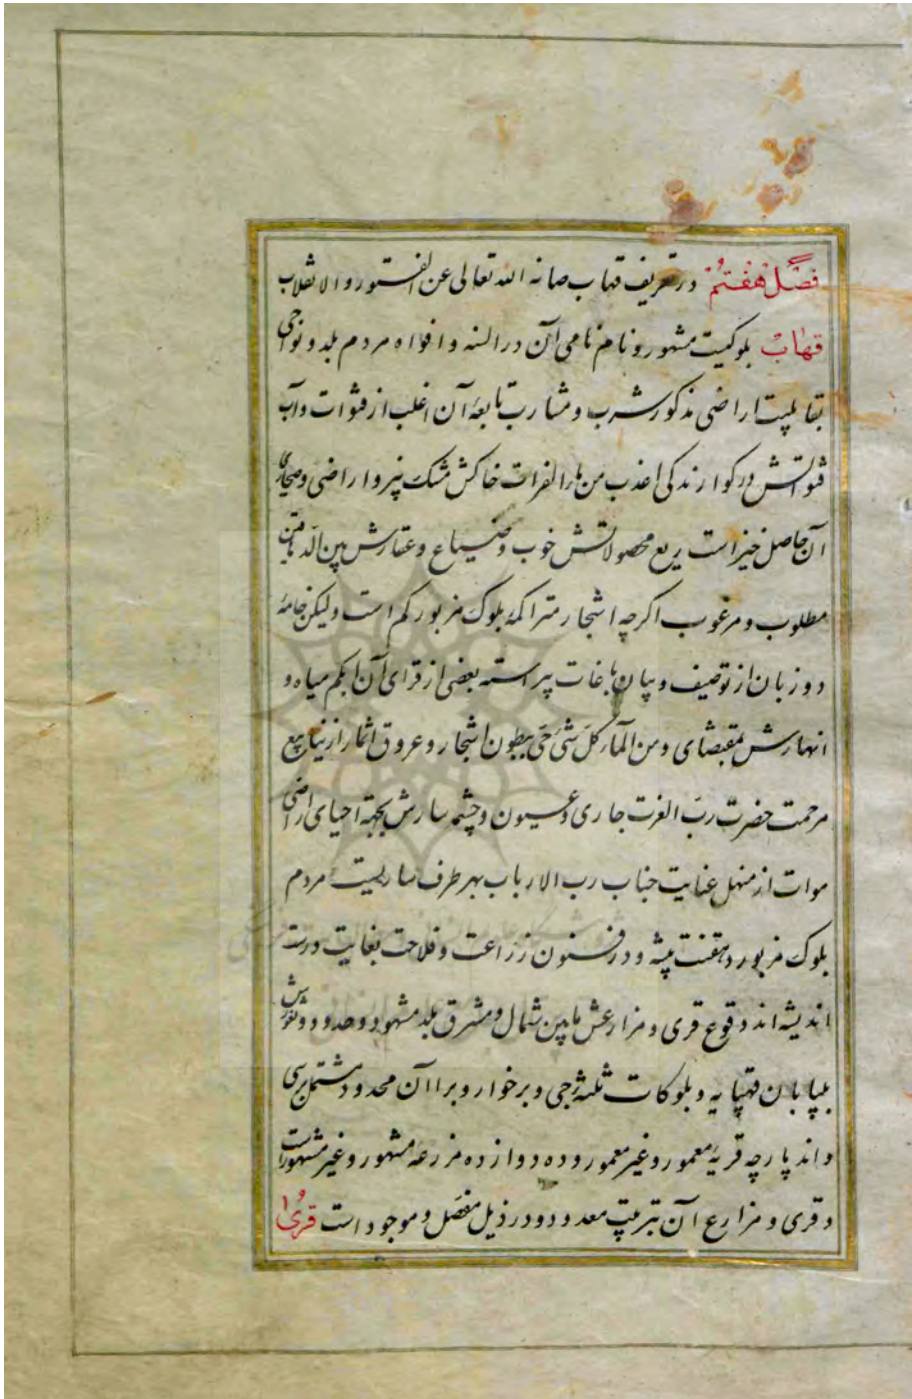 فصل هفتم در تعریف قهاب صانه الله تعالی عن الفتور و الانقلاب
قهاب بلوکیست مشهور و نام نامی آن در السنه و افواه مردم بلد و نواحی
اراضی مذکور شرب و مشارب تابعهٔ آن اغلب از قنوات و آب
قنواتش در گوارندگی اعذب من ماء الفرات خاکش مشک بیز و اراضی و صحاری
آن حاصل خیز است ریع محصولاتش خوب و ضیاع و عقارش بین الدهاقین
مطلوب و مرغوب اگرچه اشجار متراکمهٔ بلوک مزبور کم است ولیکن خامهٔ
دو زبان از توصیف و بیان باغات پیراسته بعضی از قرای آن ابکم میاه و
انهارش بمقتضای و من المآء کل شئ حی ببطون اشجار و عروق اثمار از ینابیع
مرحمت حضرت رب العزت جاری و عیون و چشمه سارش بجهة احیای اراضی
موات از منهل عنایت جناب رب الارباب بهر طرف ساریست مردم
بلوک مزبور دهقنت پیشه و در فنون زراعت و فلاحت بغایت درست
اندیشه اند وقوع قری و مزارعش مابین شمال و مشرق بلد مشهود و حدود و ثغورش
ببیابان قهپایه و بلوکات ثلثه جی و برخوار و براان محدود مشتمل بر سی
و اند پارچه قریه معمور و غیر معمور و ده دوازده مزرعه مشهور و غیر مشهور است
و قری و مزارع آن بترتیب معدود و در ذیل مفصل و موجود است قری